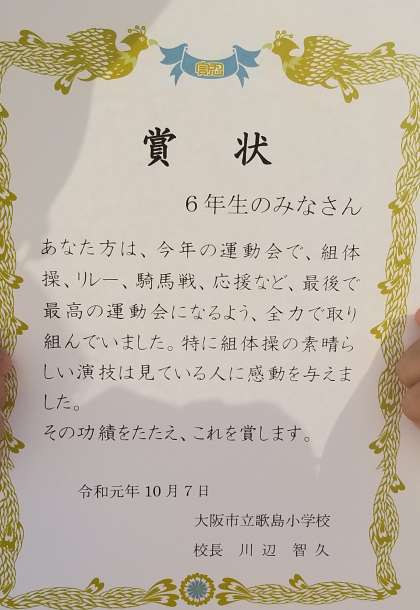 賞状
6年生のみなさん
あなた方は、今年の運動会で、組体
操、リレー、騎馬戦、応援など、最後で
最高の運動会になるよう、全力で取り
組んでいました。特に組体操の素晴ら
しい演技は見ている人に感動を与えま
した。
その功績をたたえ、これを賞します。
令和元年10月7日
大阪市立歌島小学校
校長 川辺 智久